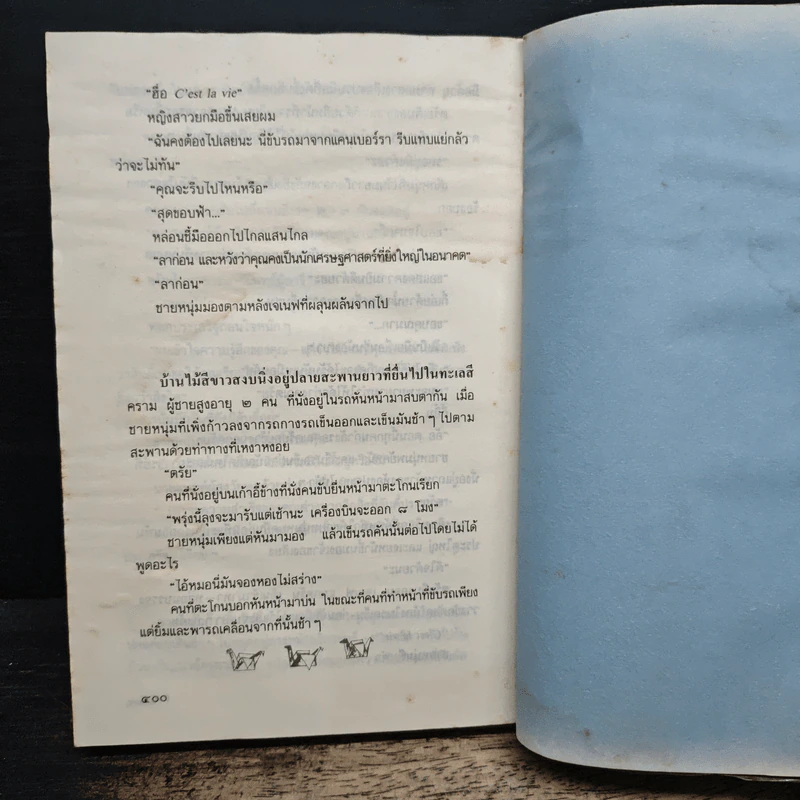 “ฮื่อ C’est la vie”
หญิงสาวยกมือขึ้นเสยผม
“ฉันคงต้องไปเลยนะ นี่ขับรถมาจากแคนเบอร์รา รีบแทบแย่กลัว
ว่าจะไม่ทัน”
“คุณจะรีบไปไหนหรือ”
“สุดขอบฟ้า...”
หล่อนชี้มือออกไปไกลแสนไกล
“ลาก่อน และหวังว่าคุณคงเป็นนักเศรษฐศาสตร์ที่ยิ่งใหญ่ในอนาคต”
“ลาก่อน”
ชายหนุ่มมองตามหลังเจเนฟที่ผลุนผลันจากไป
บ้านไม้สีขาวสงบนิ่งอยู่ปลายสะพานยาวที่ยื่นไปในทะเลสี
คราม ผู้ชายสูงอายุ ๒ คน ที่นั่งอยู่ในรถหันหน้ามาสบตากัน เมื่อ
ชายหนุ่มที่เพิ่งก้าวลงจากรถกางรถเข็นออกและเข็นมันช้าๆ ไปตาม
สะพานด้วยท่าทางที่เหงาหงอย
“ดรัย”
คนที่นั่งอยู่บนเก้าอี้ข้างที่นั่งคนขับยื่นหน้ามาตะโกนเรียก
“พรุ่งนี้ลุงจะมารับแต่เช้านะ เครื่องบินจะออก ๘ โมง”
ชายหนุ่มเพียงแต่หันมามอง แล้วเข็นรถคันนั้นต่อไปโดยไม่ได้
พูดอะไร
“ไอ้หมอนี่มันจองหองไม่สร่าง”
คนที่ตะโกนบอกหันหน้ามาบ่น ในขณะที่คนที่ทำหน้าที่ขับรถเพียง
แต่ยิ้มและพารถเคลื่อนจากที่นั้นช้าๆ
๔๐๐